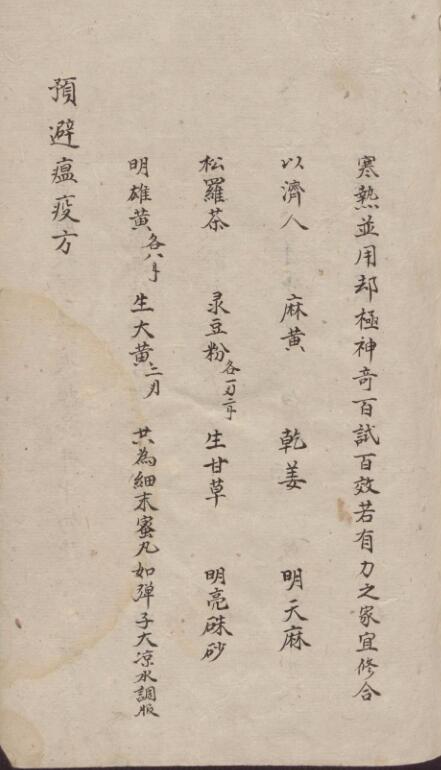 寒熱並用却極神奇百試百效若有力之家宜修合
以濟人 麻黃 乾姜 明天麻
松羅茶 录豆粉各一刃二手 生甘草 明亮硃砂
明雄黃各八手 生大黃二刃 共為細末蜜丸如弹子大凉水調服
預避瘟疫方